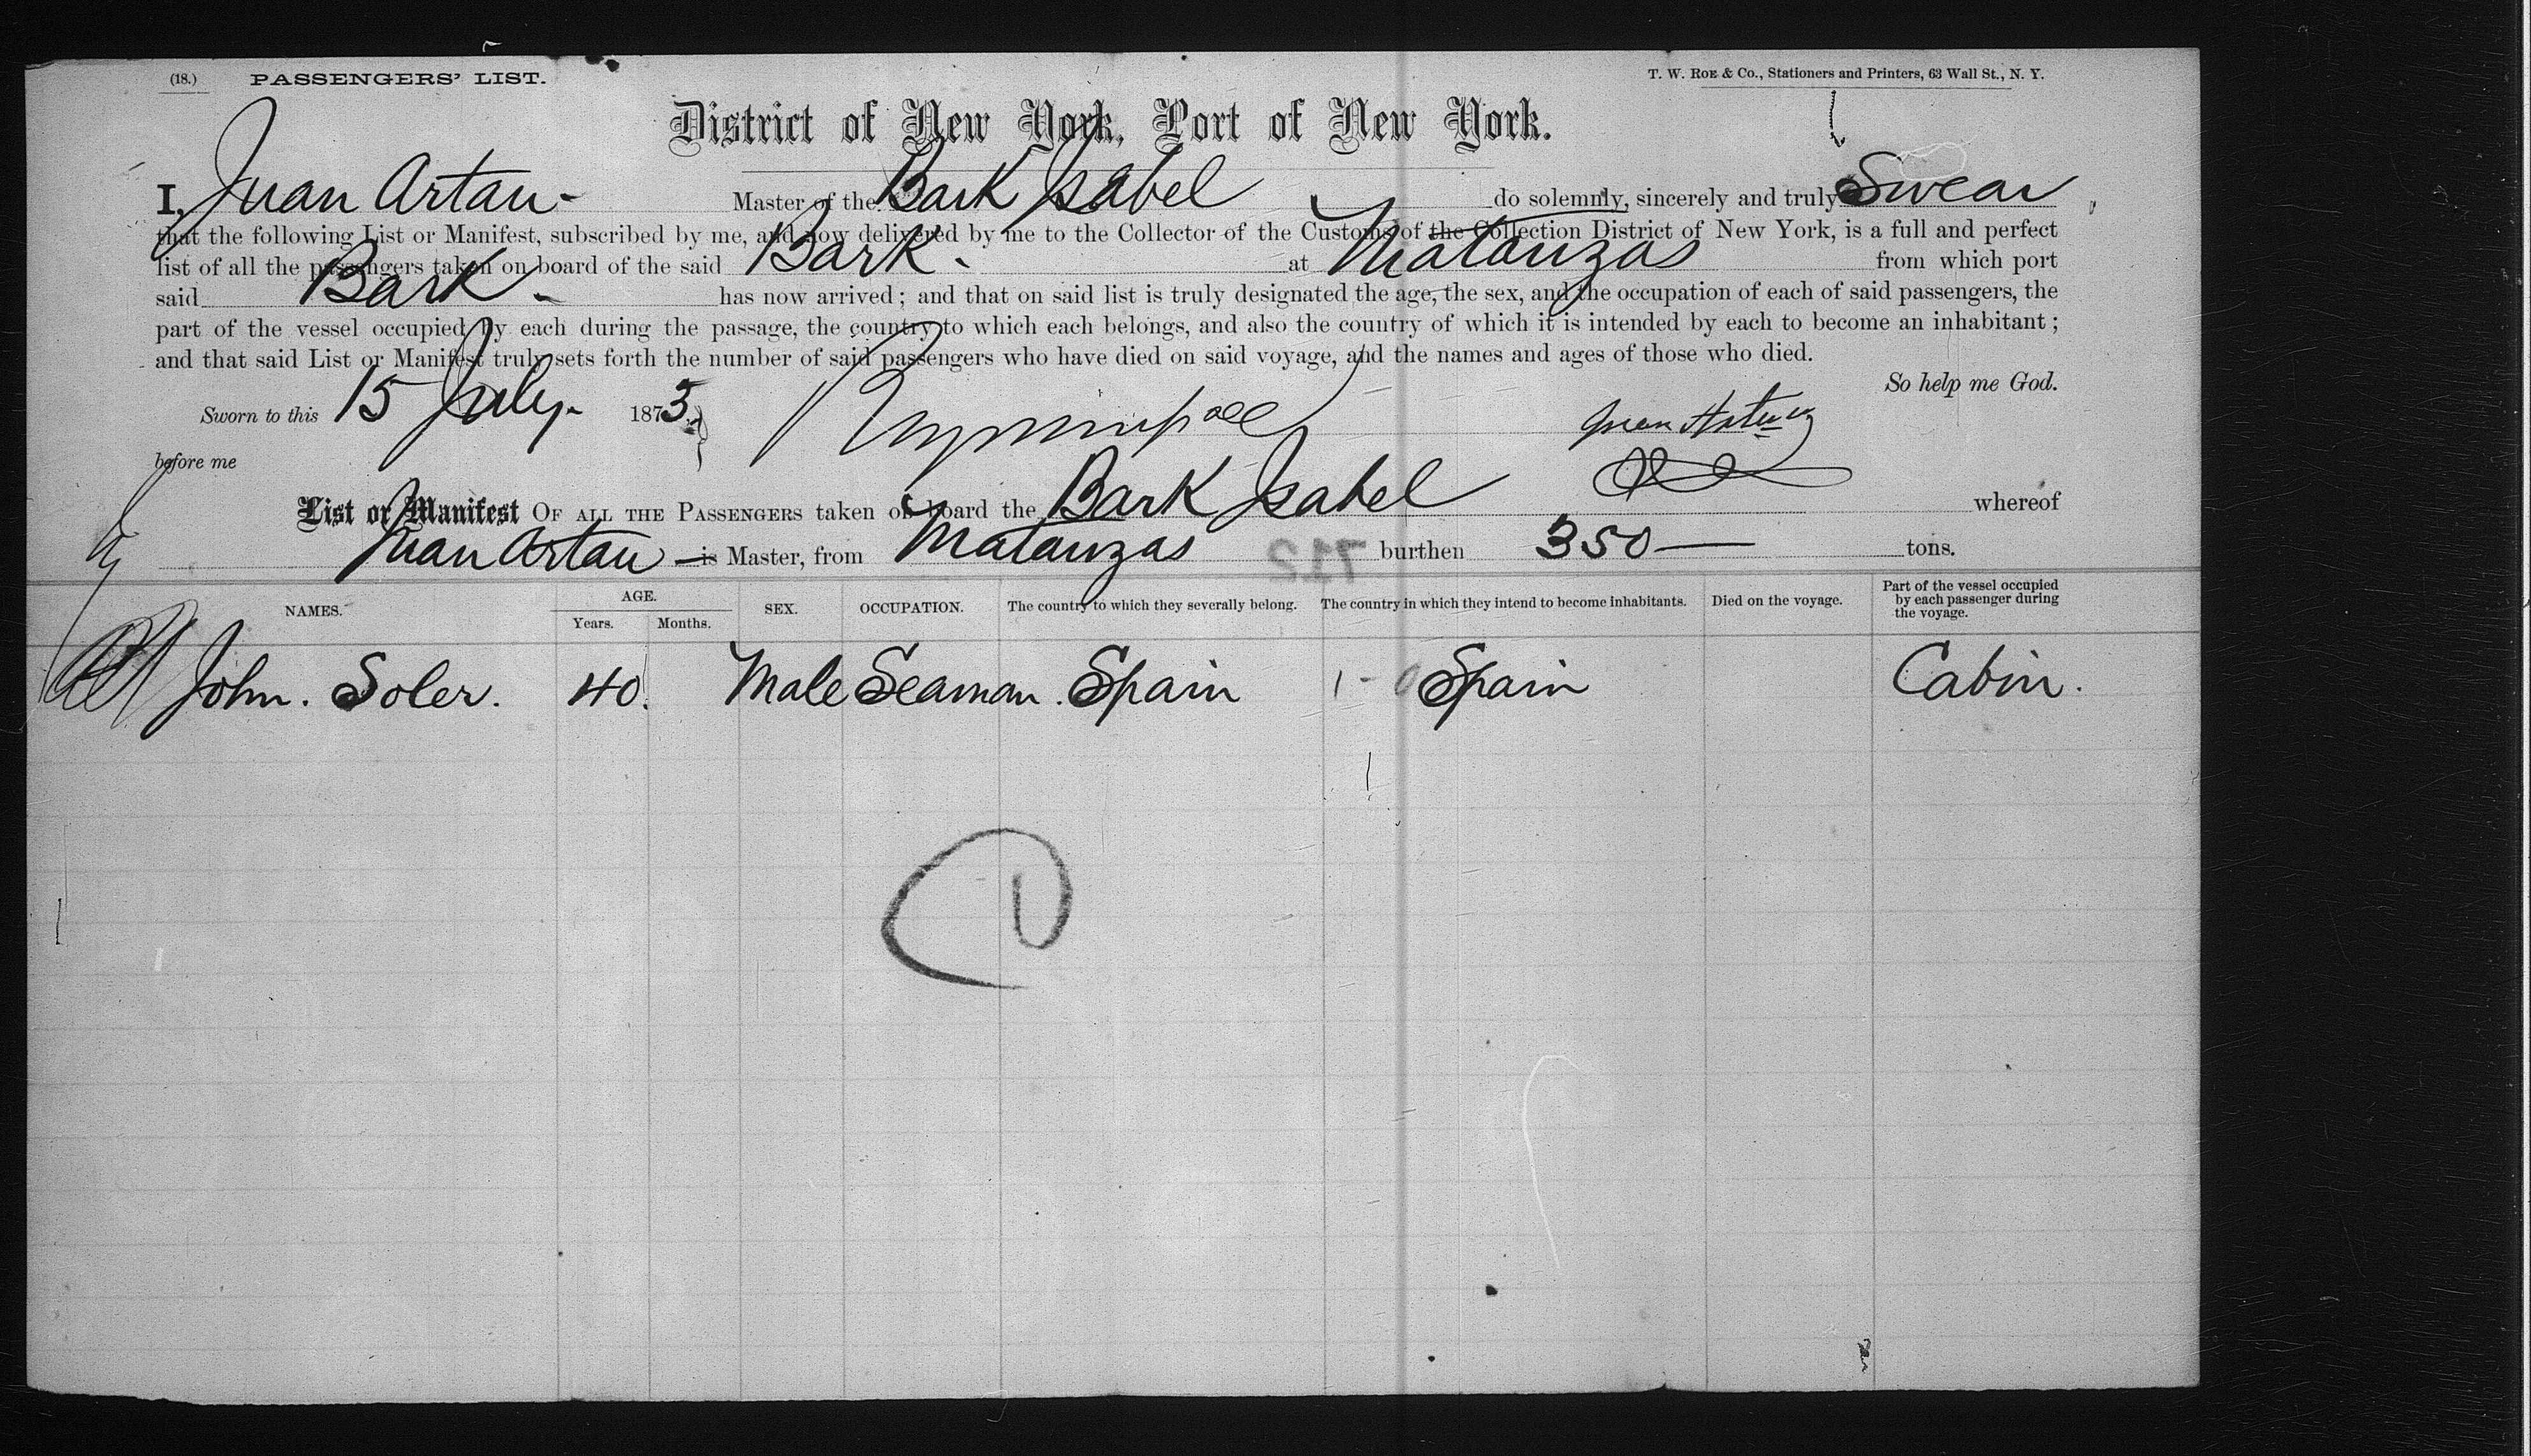 (18.) PASSENGERS' LIST. T. W. ROE & Co., Stationers and Printers, 63 Wall St., N. Y.
District of New York, Port of New York.
I, Juan Artau - Master of the Bark Isabel do solemnly, sincerely and truly Swear
that the following List or Manifest, subscribed by me, and now delivered by me to the Collector of the Customs of the Collection District of New York, is a full and perfect
list of all the passengers taken on board of the said Bark - at Matanzas from which port
said Bark - has now arrived; and that on said list is truly designated the age, the sex, and the occupation of each of said passengers, the
part of the vessel occupied by each during the passage, the country to which each belongs, and also the country of which it is intended by each to become an inhabitant;
and that said List or Manifest truly sets forth the number of said passengers who have died on said voyage, and the names and ages of those who died.
So help me God.
Sworn to this 15 July. 1875 Juan Artau
before me
List or Manifest OF ALL THE PASSENGERS taken on board the Bark Isabel whereof
Juan Artau - is Master, from Matanzas 712 burthen 350 — tons.
NAMES. AGE. Years. Months. SEX. OCCUPATION. The country to which they severally belong. The country in which they intend to become inhabitants. Died on the voyage. Part of the vessel occupied by each passenger during the voyage.
John. Soler. 40. Male Seaman. Spain 1 - 0 Spain Cabin.